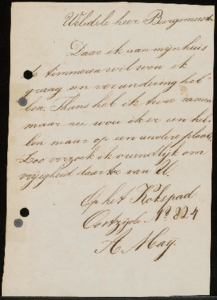 Weledele heer Burgemeester
Daar ik van mijn huis
te timmeren wil wou ik
graag en verandering heb
ben. Thans heb ik twee ramen
maar nu wou ik er een heb
ben maar op een andere plaats
Zoo verzoek ik vriendelijk om
vrijheid daar toe van U.
Op het Kokspad
Oostzijde No 224
A. May.